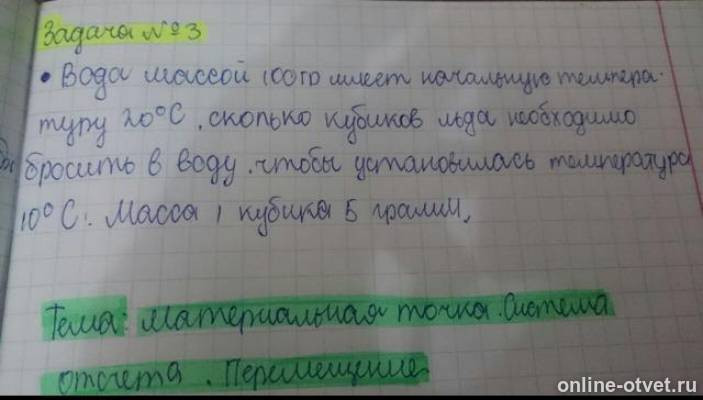 Задача №3
• Вода массой 100гр имеет начальную темпера-
туру 20°С, сколько кубиков льда необходимо
бросить в воду, чтобы установилась температура
10°С. Масса 1 кубика 5 грамм.
Тема: Материальная точка. Система
отсчета. Перемещение
online-otvet.ru